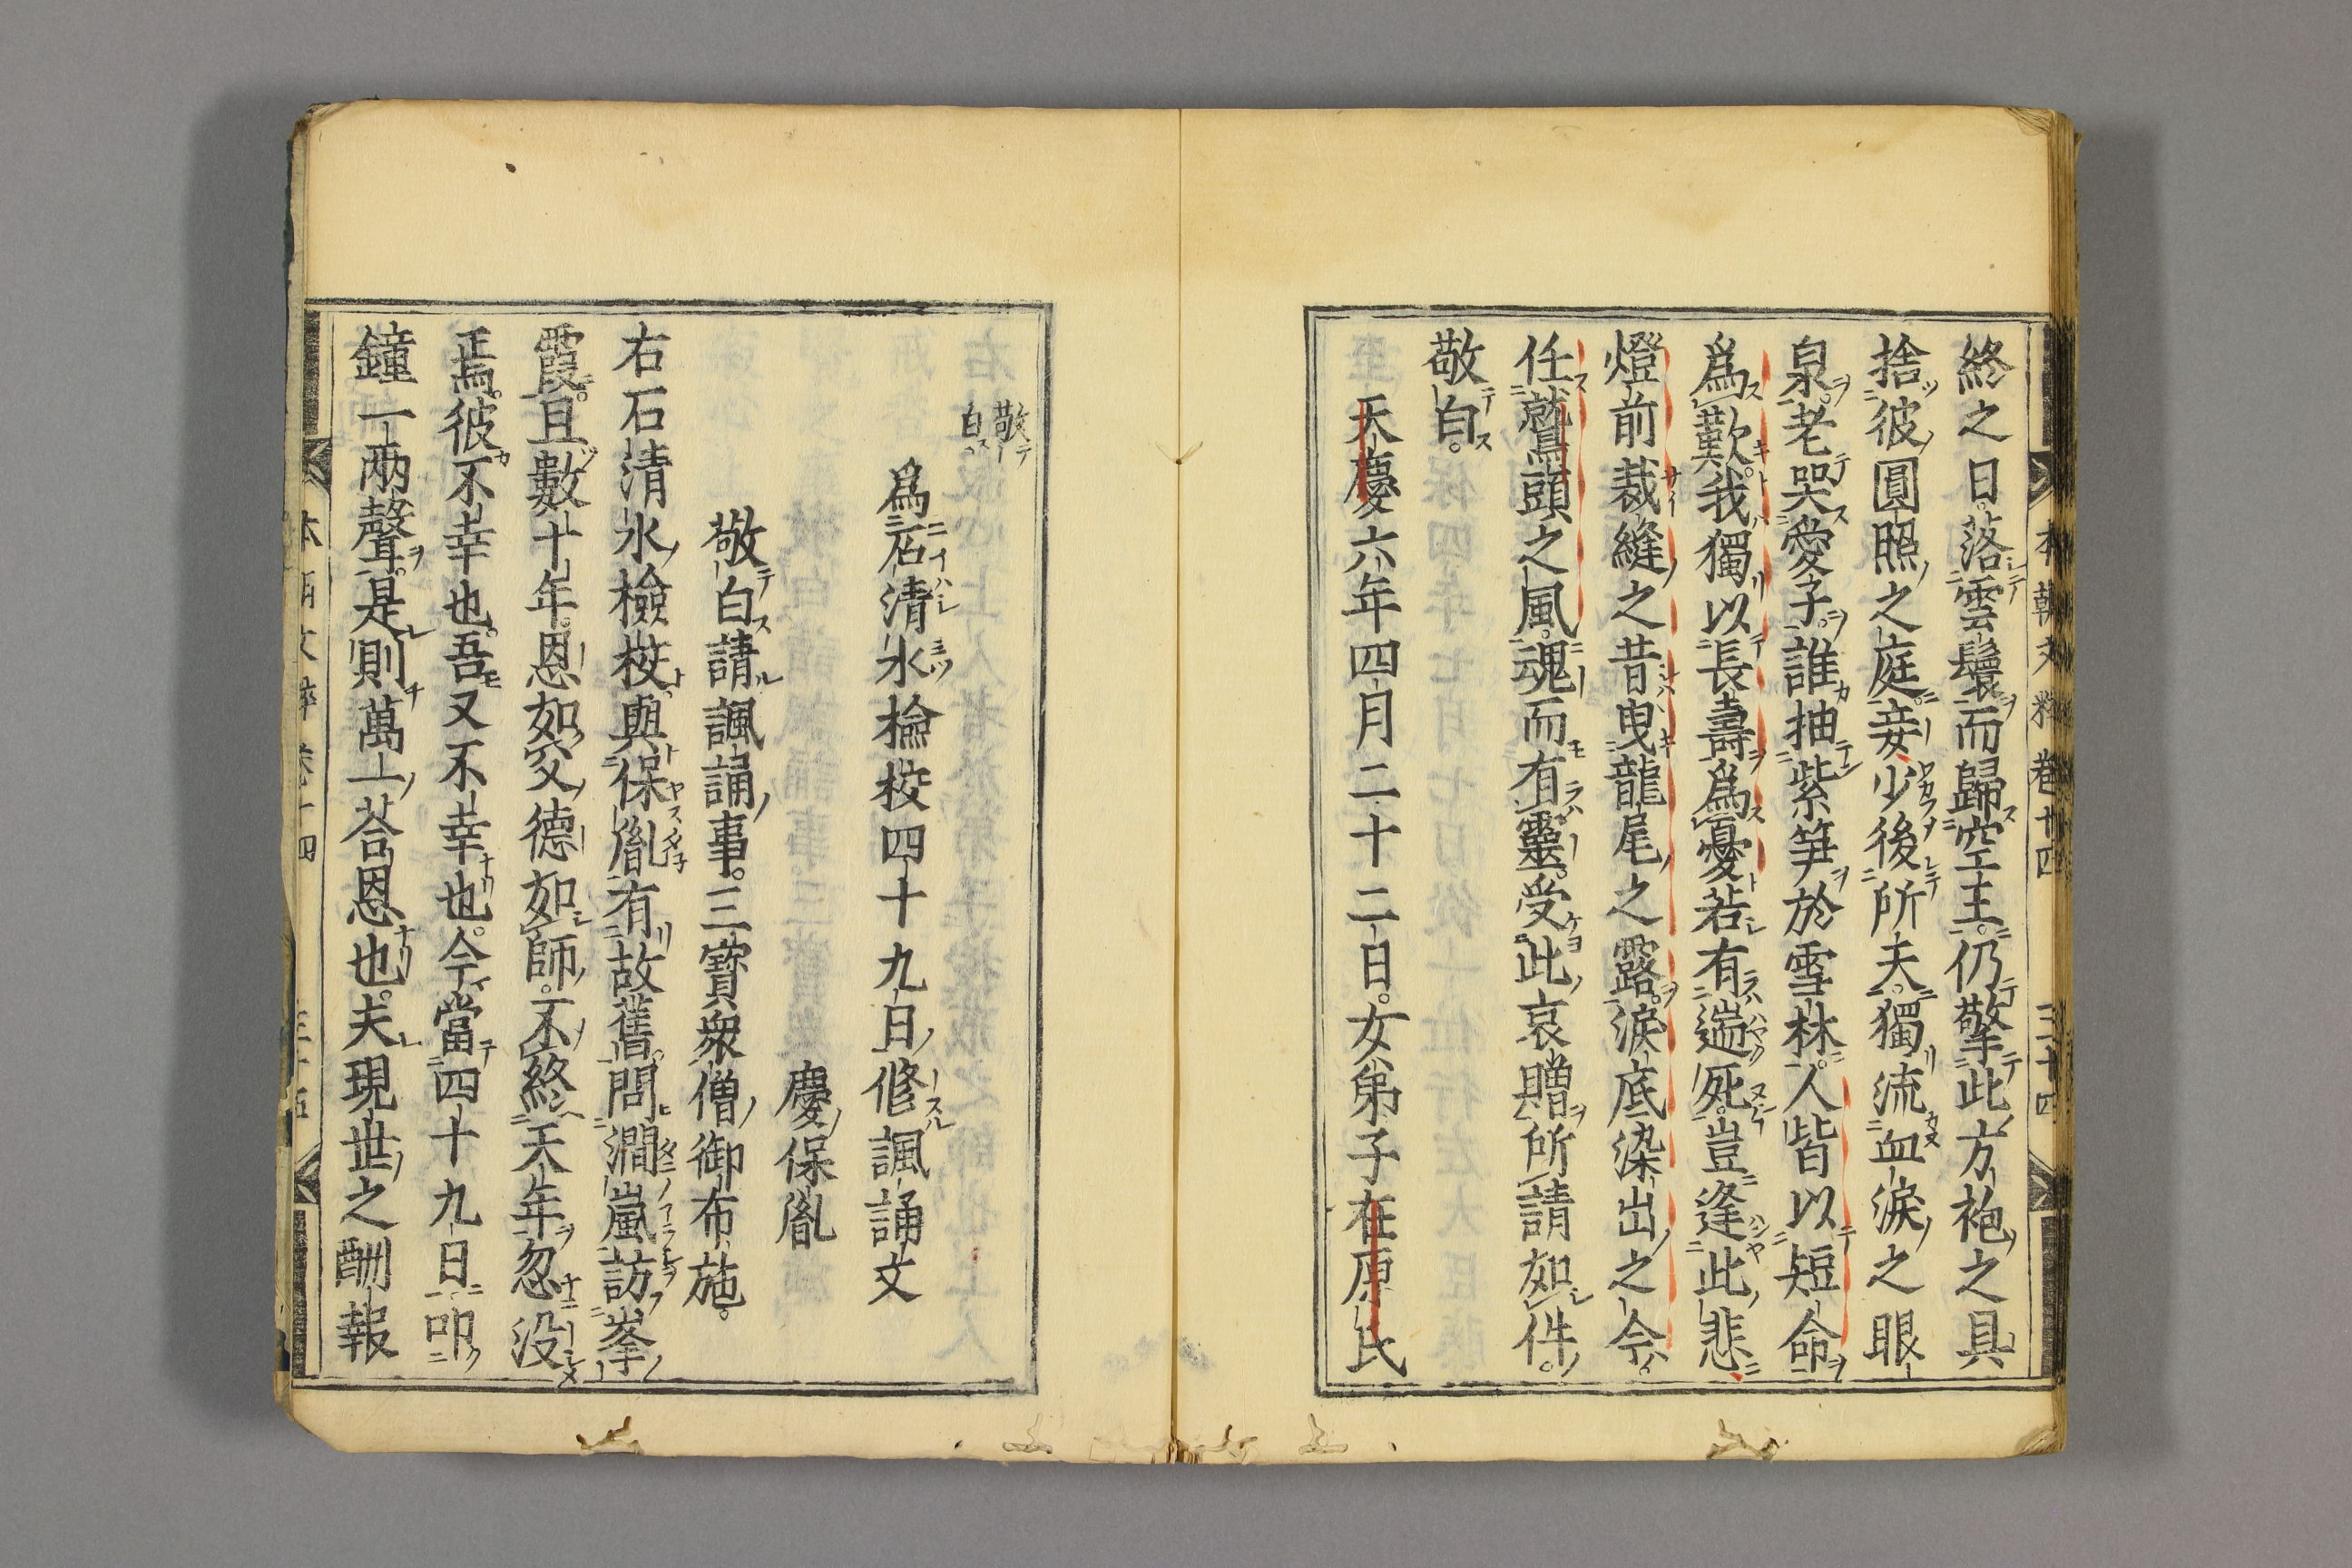 終之日。落雲鬟而歸空王。仍擎此方袍之具
捨彼圓照之庭。妾少後所夫。獨流血淚之眼
泉。老哭愛子。誰抽紫笋於雪林。人皆以短命
爲歎。我獨以長壽爲憂。若有遄死。豈逢此悲
燈前裁縫之昔。曳龍尾之露。淚底染出之今。
任鷲頭之風。魂而有靈。受此哀贈。所請如件。
敬白。
天慶六年四月二十二日。女弟子在原氏
本朝文粹卷十四
三十四
敬白
爲石清水檢校四十九日修諷誦文
慶保胤
敬白請諷誦事。三寶衆僧御布施。
右石清水檢校與保胤有故舊。問澗嵐訪峯
霞。且數十年。恩如父德如師。不終天年忽没
焉。彼不幸也。吾又不幸也。今當四十九日叩
鐘一兩聲。是則萬ノ一荅恩也。夫現世之酬報